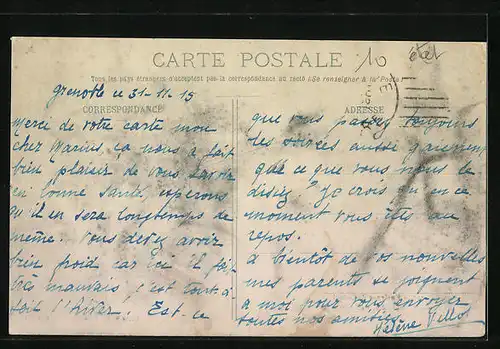 CARTE POSTALE
10
Tous les pays étrangers n'acceptent pas la correspondance au recto (Se renseigner à la Poste)
Grenoble ce 31-11-15
CORRESPONDANCE
ADRESSE
Merci de votre carte mon
cher Marius ça nous a fait
bien plaisir de vous savoir
en bonne santé, espérons
qu'il en sera longtemps de
même. Vous devez avoir
bien froid car ici il fait
très mauvais, c'est tout à
fait l'hiver. Est-ce
que vous passez toujours
des soirées aussi gaiement
que ce que vous nous le
disiez? Je crois qu'en ce
moment vous êtes au
repos.
à bientôt de vos nouvelles
mes parents se joignent
à moi pour vous envoyer
toutes nos amitiés
Hélène